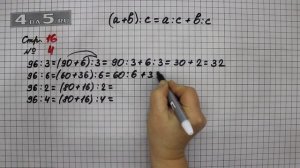 4AS5.RU
(a+b):c=a:c+b:c
Стр. 16
№ 4
96:3=(90+6):3=90:3+6:3=30+2=32
96:6=(60+36):6=60:6+3
96:2=(80+16):2=
96:4=(80+16):4=